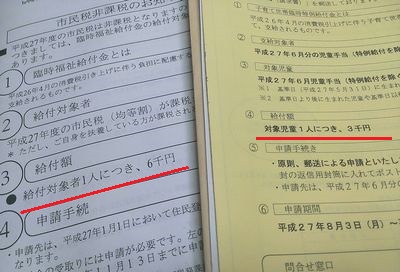 市民税非課税のお知
平成27年度の市民税が非課税となりますの
つきましては、臨時福祉給付金の給付対
① 臨時福祉給付金とは
平成26年4月の消費税引上げに伴う負担に配慮する
て支給されるものです。
② 給付対象者
平成27年度の市民税（均等割）が課税
* ただし、ご自身を扶養している方が課税され
③ 給付額
● 給付対象者1人につき、6千円
④ 申請手続
・申請先は、平成27年1月1日において住民登
の受取りには申請が必要です。
年11月13日までに申
子育て世帯臨時特例給付金とは
平成26年4月の消費税引上げに伴う子育て世
て支給されるものです。
② 支給対象者
平成27年6月分の児童手当（特例給付を除
③ 対象児童
平成27年6月分児童手当（特例給付を除く
※1 基準日（平成27年5月31日）に生まれ
※2 基準日より後に生まれた児童や基準日以
④ 給付額
対象児童1人につき、3千円
⑤ 申請手続き
・原則、郵送による申請といたし
封の返信用封筒に入れてポスト
・申請先は、平成27年6月分
⑥ 申請期間
平成27年8月3日（月）～
問合せ窓口